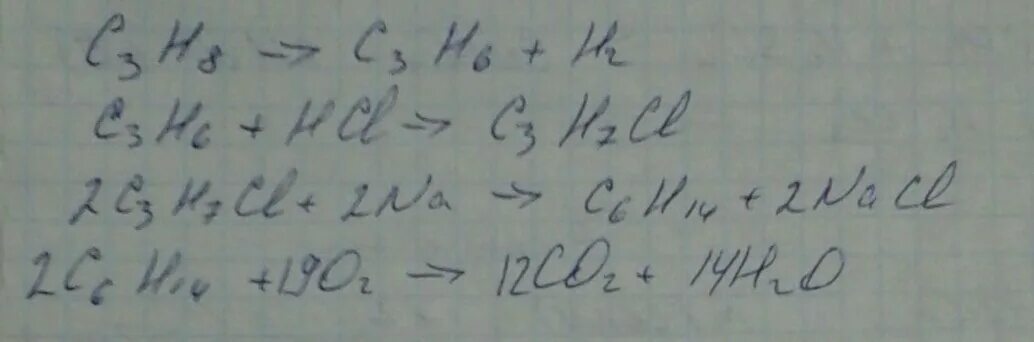 C₃H₈ → C₃H₆ + H₂
C₃H₆ + HCl → C₃H₇Cl
2C₃H₇Cl + 2Na → C₆H₁₄ + 2NaCl
2C₆H₁₄ + 19O₂ → 12CO₂ + 14H₂O